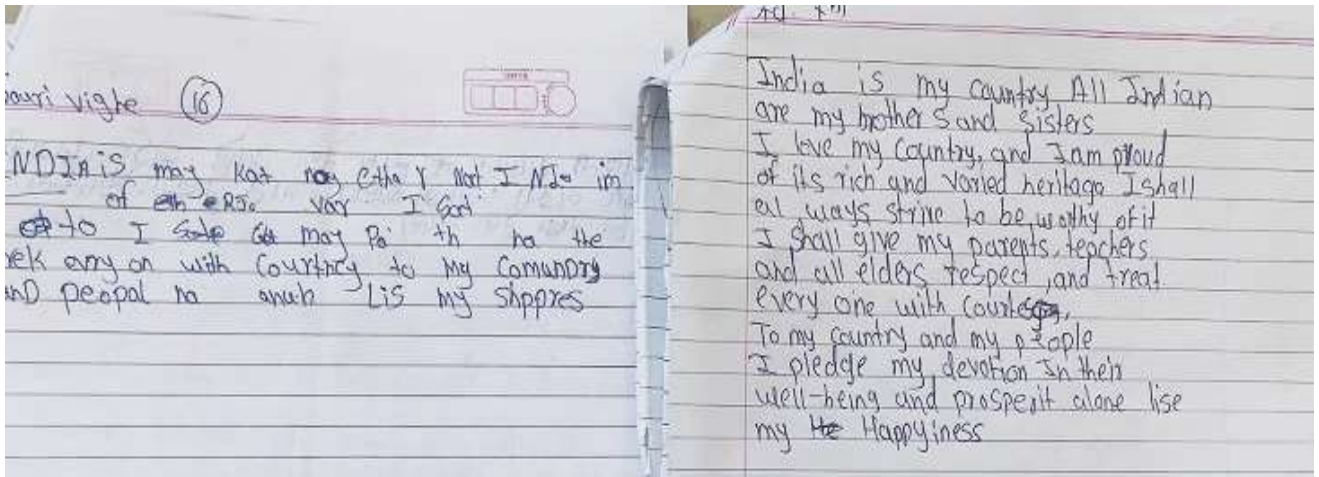 ouri vighe 16
NDIA iS may Kat may Etha Y Nort I NDa im
of eRJo vary I God
to I may Pa th ha the
ek evry on with Courtncy to My ComunDry
nD peopal na anub LiS my Shppres
India is my country All Indian
are my brothers and Sisters
I love my Country, and I am proud
of its rich and varied heritage I shall
al ways strive to be worthy of it
I shall give my parents, teachers
and all elders respect, and treat
every one with Courtesy,
To my country and my people
I pledge my devotion In their
well-being and prosperit alone lise
my Happyiness